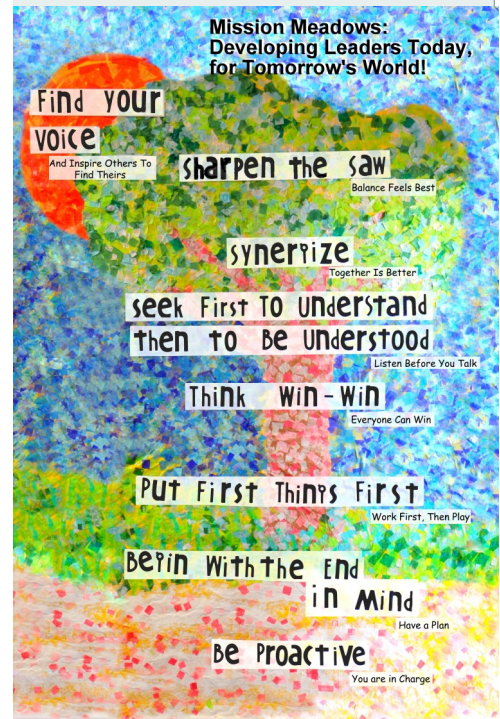 Mission Meadows:
Developing Leaders Today,
for Tomorrow's World!
Find your
voice
And Inspire Others To
Find Theirs
sharpen the saw
Balance Feels Best
synergize
Together Is Better
seek First To understand
then to Be understood
Listen Before You Talk
Think win-win
Everyone Can Win
Put First Things First
Work First, Then Play
Begin With the End
in Mind
Have a Plan
Be Proactive
You are in Charge